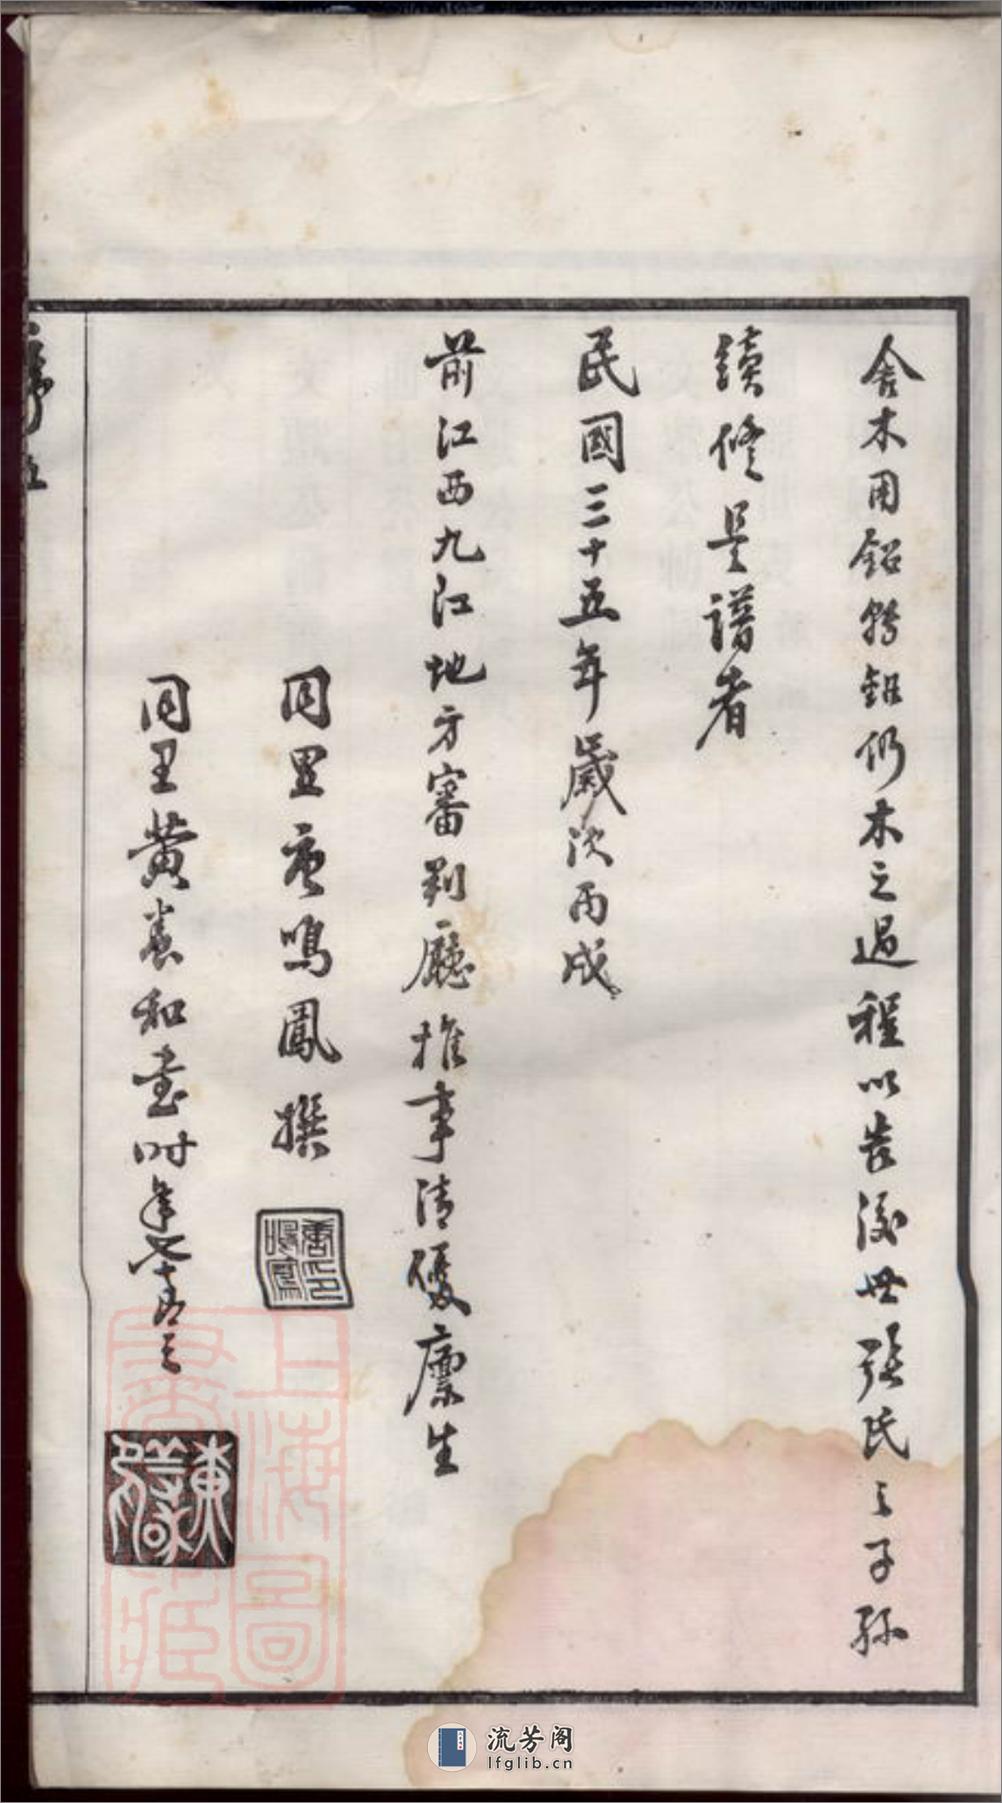 舍木用鉛轉鉛仍木之過程以告後世張氏之子孫
讀修是譜者
民國三十五年歲次丙戌
前江西九江地方審判廳推事清優廩生
同里唐鳴鳳撰
唐鳴鳳印
同里黃養和書時年七十有三
上海圖書館藏
序
流芳阁
lfglib.cn